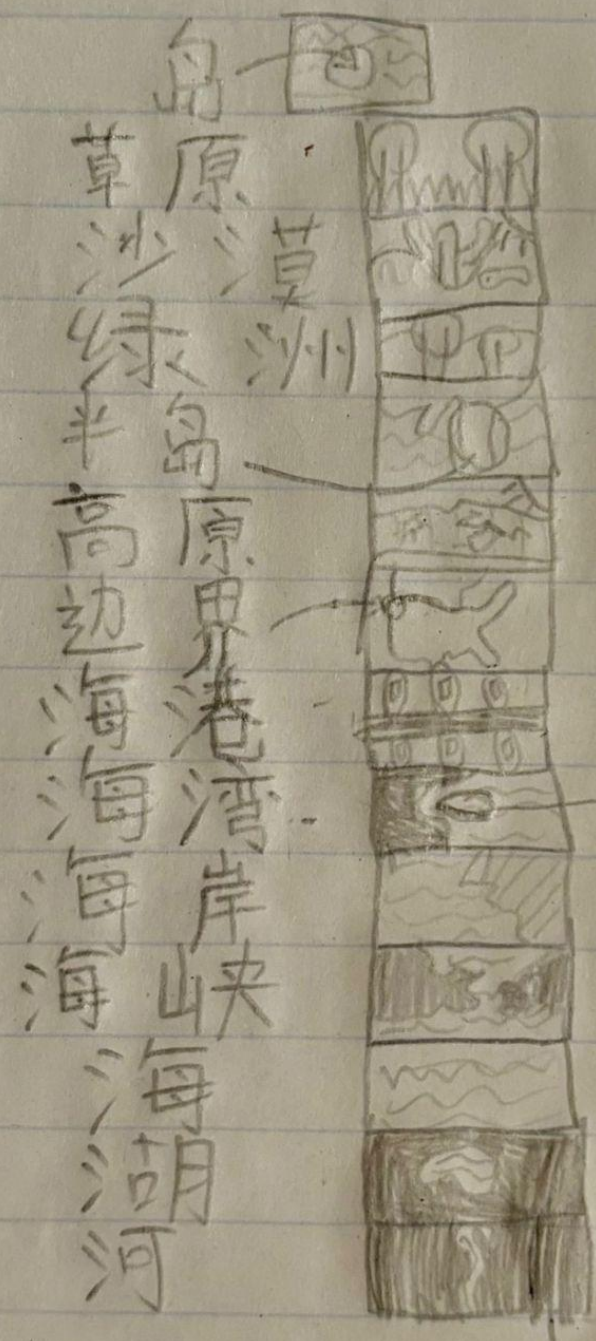 岛
草原
沙漠
绿洲
半岛
高原
边界
海港
海湾
海岸
海峡
海
湖
河